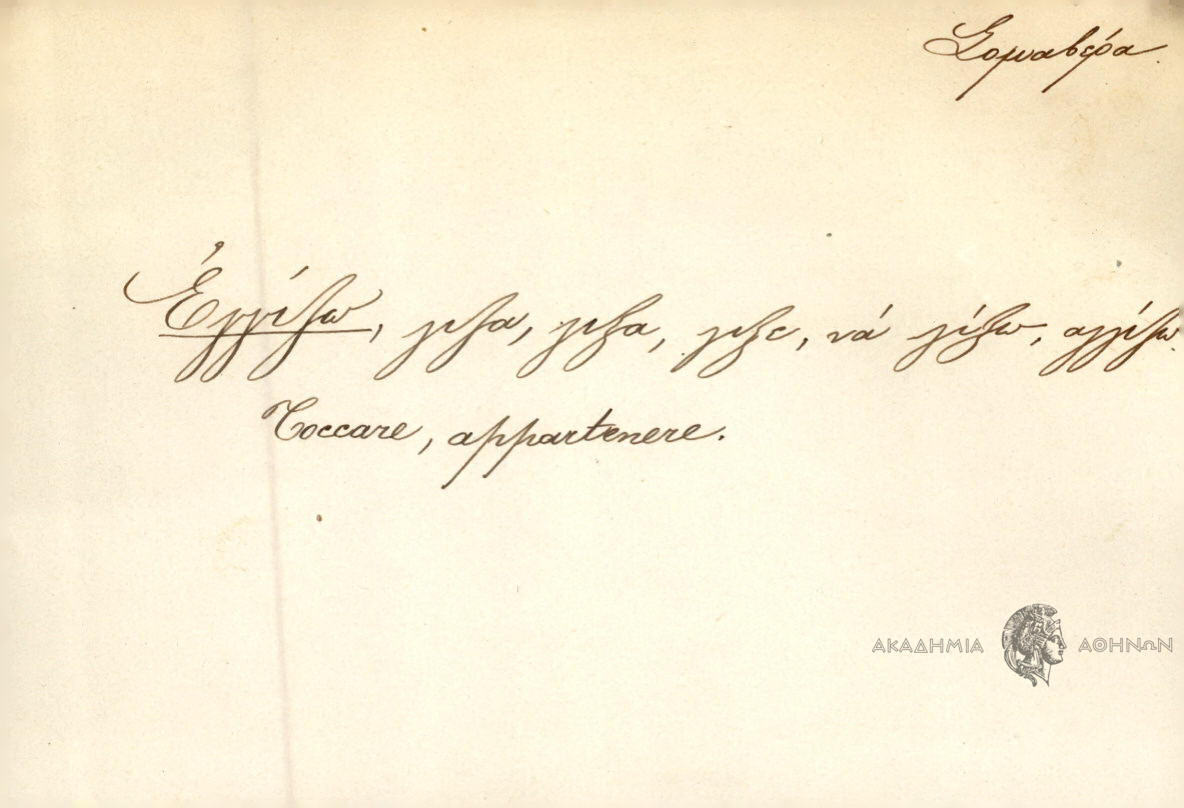 Σομαβέρα.
Ἐγγίζω, γιζα, γιξα, γιξε, νά γίξω, αγγίζω.
Toccare, appartenere.
ΑΚΑΔΗΜΙΑ ΑΘΗΝΩΝ